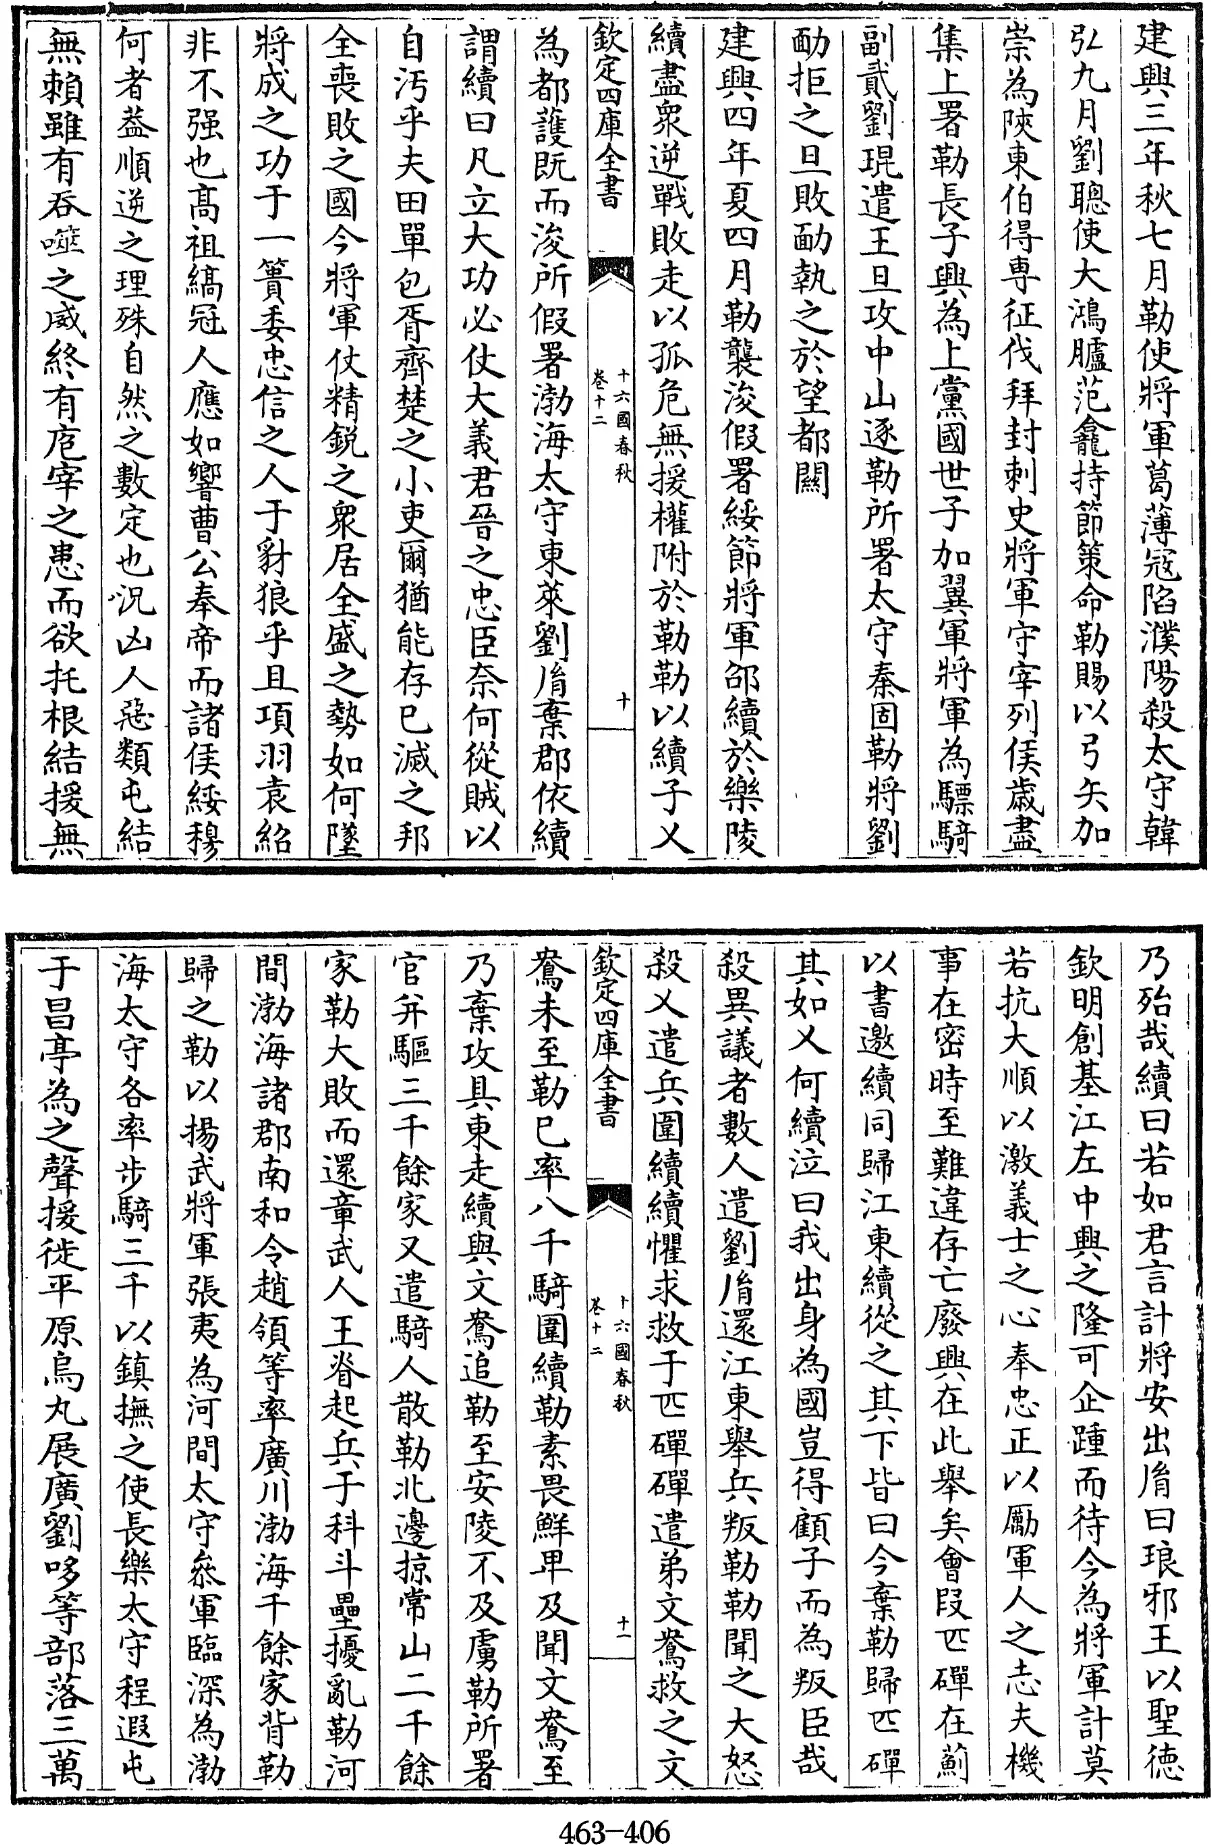 建興三年秋七月勒使將軍葛薄寇陷濮陽殺太守韓
弘九月劉聰使大鴻臚范龕持節策命勒賜以弓矢加
崇為陜東伯得專征伐拜封刺史將軍守宰列侯歲盡
集上署勒長子興為上黨國世子加翼軍將軍為驃騎
副貳劉琨遣王旦攻中山逐勒所署太守秦固勒將劉
勔拒之旦敗勔執之於望都關
建興四年夏四月勒襲浚假署綏節將軍邵續於樂陵
續盡衆逆戰敗走以孤危無援權附於勒勒以續子乂
欽定四庫全書
十六國春秋
卷十二
十
為都護既而浚所假署渤海太守東萊劉胤棄郡依續
謂續曰凡立大功必仗大義君晉之忠臣奈何從賊以
自汚乎夫田單包胥齊楚之小吏爾猶能存已滅之邦
全喪敗之國今將軍仗精銳之衆居全盛之勢如何墜
將成之功于一簣委忠信之人于豺狼乎且項羽袁紹
非不强也高祖縞冠人應如響曹公奉帝而諸侯綏穆
何者葢順逆之理殊自然之數定也况凶人惡類屯結
無賴雖有吞噬之威終有庖宰之患而欲托根結援無
乃殆哉續曰若如君言計將安出胤曰琅邪王以聖德
欽明創基江左中興之隆可企踵而待今為將軍計莫
若抗大順以激義士之心奉忠正以勵軍人之志夫機
事在密時至難違存亡廢興在此舉矣會段匹磾在薊
以書邀續同歸江東續從之其下皆曰今棄勒歸匹磾
其如乂何續泣曰我出身為國豈得顧子而為叛臣哉
殺異議者數人遣劉胤還江東舉兵叛勒勒聞之大怒
殺乂遣兵圍續續懼求救于匹磾磾遣弟文鴦救之文
欽定四庫全書
十六國春秋
卷十二
十一
鴦未至勒已率八千騎圍續勒素畏鮮卑及聞文鴦至
乃棄攻具東走續與文鴦追勒至安陵不及虜勒所署
官并驅三千餘家又遣騎人散勒北邊掠常山二千餘
家勒大敗而還章武人王眘起兵于科斗壘擾亂勒河
間渤海諸郡南和令趙領等率廣川渤海千餘家背勒
歸之勒以揚武將軍張夷為河間太守叅軍臨深為渤
海太守各率步騎三千以鎮撫之使長樂太守程遐屯
于昌亭為之聲援徙平原烏丸展廣劉哆等部落三萬
463-406